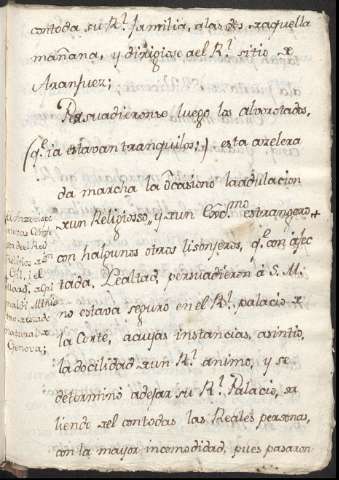 contoda su R.l familia, a las dos de aquella
mañana, y dirigiose ael R.l sitio de
Aranjuez;
Persuadieronse luego los alvorotados,
(q.e ia estavan tranquilos;) esta azelera
da marcha la ocasionò la adulacion
de un Religiosso, y de un Conc.no estrangero +
con halgunos otros lisonjeros, q.e con afec
tada, Lealtad, persuadieron à S. M.
no estava seguro en el R.l palacio de
la Corte, acuyas instancias, asintio,
la docilidad de un R.l animo, y se
determinò adejar su R.l Palacio, sa
liendo del contodas las Reales personas,
con la mayor incomodidad, pues pasaron
del Rei
Genova;